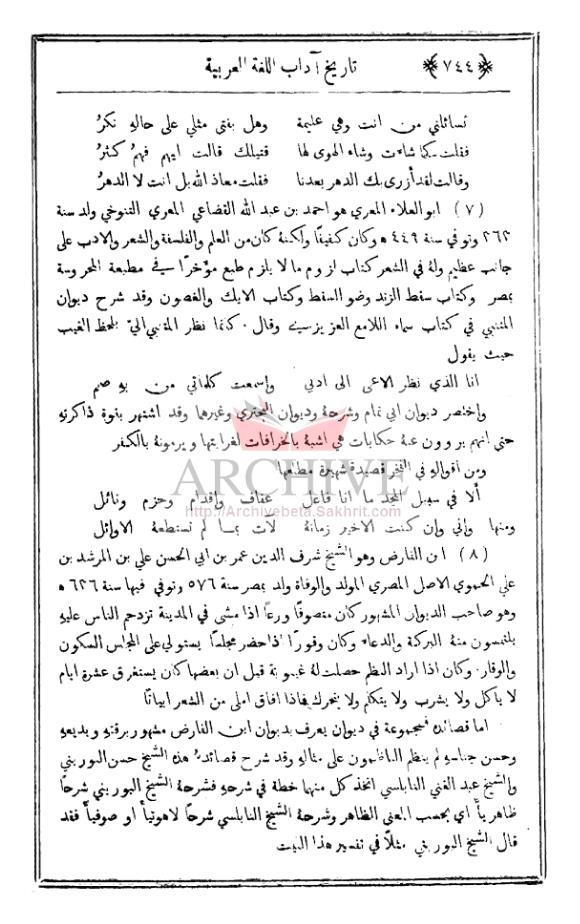 ﴿٧٤٤﴾ تاريخ آداب اللغة العربية
تسائلني من انت وهي عليمة وهل بفتى مثلي على حالهِ نكرُ
فقلت كما شاءت وشاء الهوى لها قتيلك قالت ايهم فهمُ كثرُ
وقالت لقد أزرى بك الدهر بعدنا فقلت معاذ الله بل انت لا الدهرُ
(٧) ابو العلاء المعري هو احمد بن عبد الله القضاعي المعري التنوخي ولد سنة
٣٦٣ وتوفي سنة ٤٤٩ ه وكان كفيفًا ولكنهُ كان من العلم والفلسفة والشعر والادب على
جانب عظيم ولهُ في الشعر كتاب لزوم ما لا يلزم طبع مؤخرًا في مطبعة المحروسة
بمصر وكتاب سقط الزند وضو السقط وكتاب الايك والغصون وقد شرح ديوان
المتنبي في كتاب سماه اللامع العزيزي وقال. كنما نظر المتنبي اليّ بلحظ الغيب
حيث يقول
انا الذي نظر الاعمى الى ادبي واسمعت كلماتي من بهِ صمم
واختصر ديوان ابي تمام وشرحهُ وديوان البحتري وغيرها وقد اشتهر بقوة ذاكرتهِ
حتى انهم يروون عنهُ حكايات هي اشبهُ بالخرافات لغرابتها ويرمونهُ بالكفر
ومن اقوالهِ في الفخر قصيدة شهيرة مطلعها
ألا في سبيل المجد ما انا فاعل عفاف واقدام وحزم ونائل
ومنها واني وان كنت الاخير زمانهُ لآت بما لم تستطعهُ الاوائل
(٨) ابن الفارض وهو الشيخ شرف الدين عمر بن ابي الحسن علي بن المرشد بن
علي الحموي الاصل المصري المولد والوفاة ولد بمصر سنة ٥٧٦ وتوفي فيها سنة ٦٣٦ ه
وهو صاحب الديوان المشهور كان متصوفًا ورعًا اذا مشى في المدينة تزدحم الناس عليهِ
يلتمسون منهُ البركة والدعاء وكان وقورًا اذا حضر مجلسًا يستولي على المجلس السكون
والوقار. وكان اذا اراد النظم حصلت لهُ غيبوبة قيل ان بعضها كان يستغرق عشرة ايام
لا ياكل ولا يشرب ولا يتكلم ولا يتحرك فاذا افاق املى من الشعر ابياتًا
اما قصائده فمجموعة في ديوان يعرف بديوان ابن الفارض مشهور برقتهِ وبديعهِ
وحسن جناسهِ لم ينظم الناظمون على مثالهِ وقد شرح قصائدهُ هذه الشيخ حسن البوريني
والشيخ عبد الغني النابلسي اتخذ كل منهما خطة في شرحهِ فشرحهُ الشيخ البوريني شرحًا
ظاهريًا أي بحسب المعنى الظاهر وشرحهُ الشيخ النابلسي شرحًا لاهوتيًا او صوفيًا فقد
قال الشيخ البوريني مثلًا في تفسير هذا البيت
ARCHIVE
http://Archivebeta.Sakhrit.com